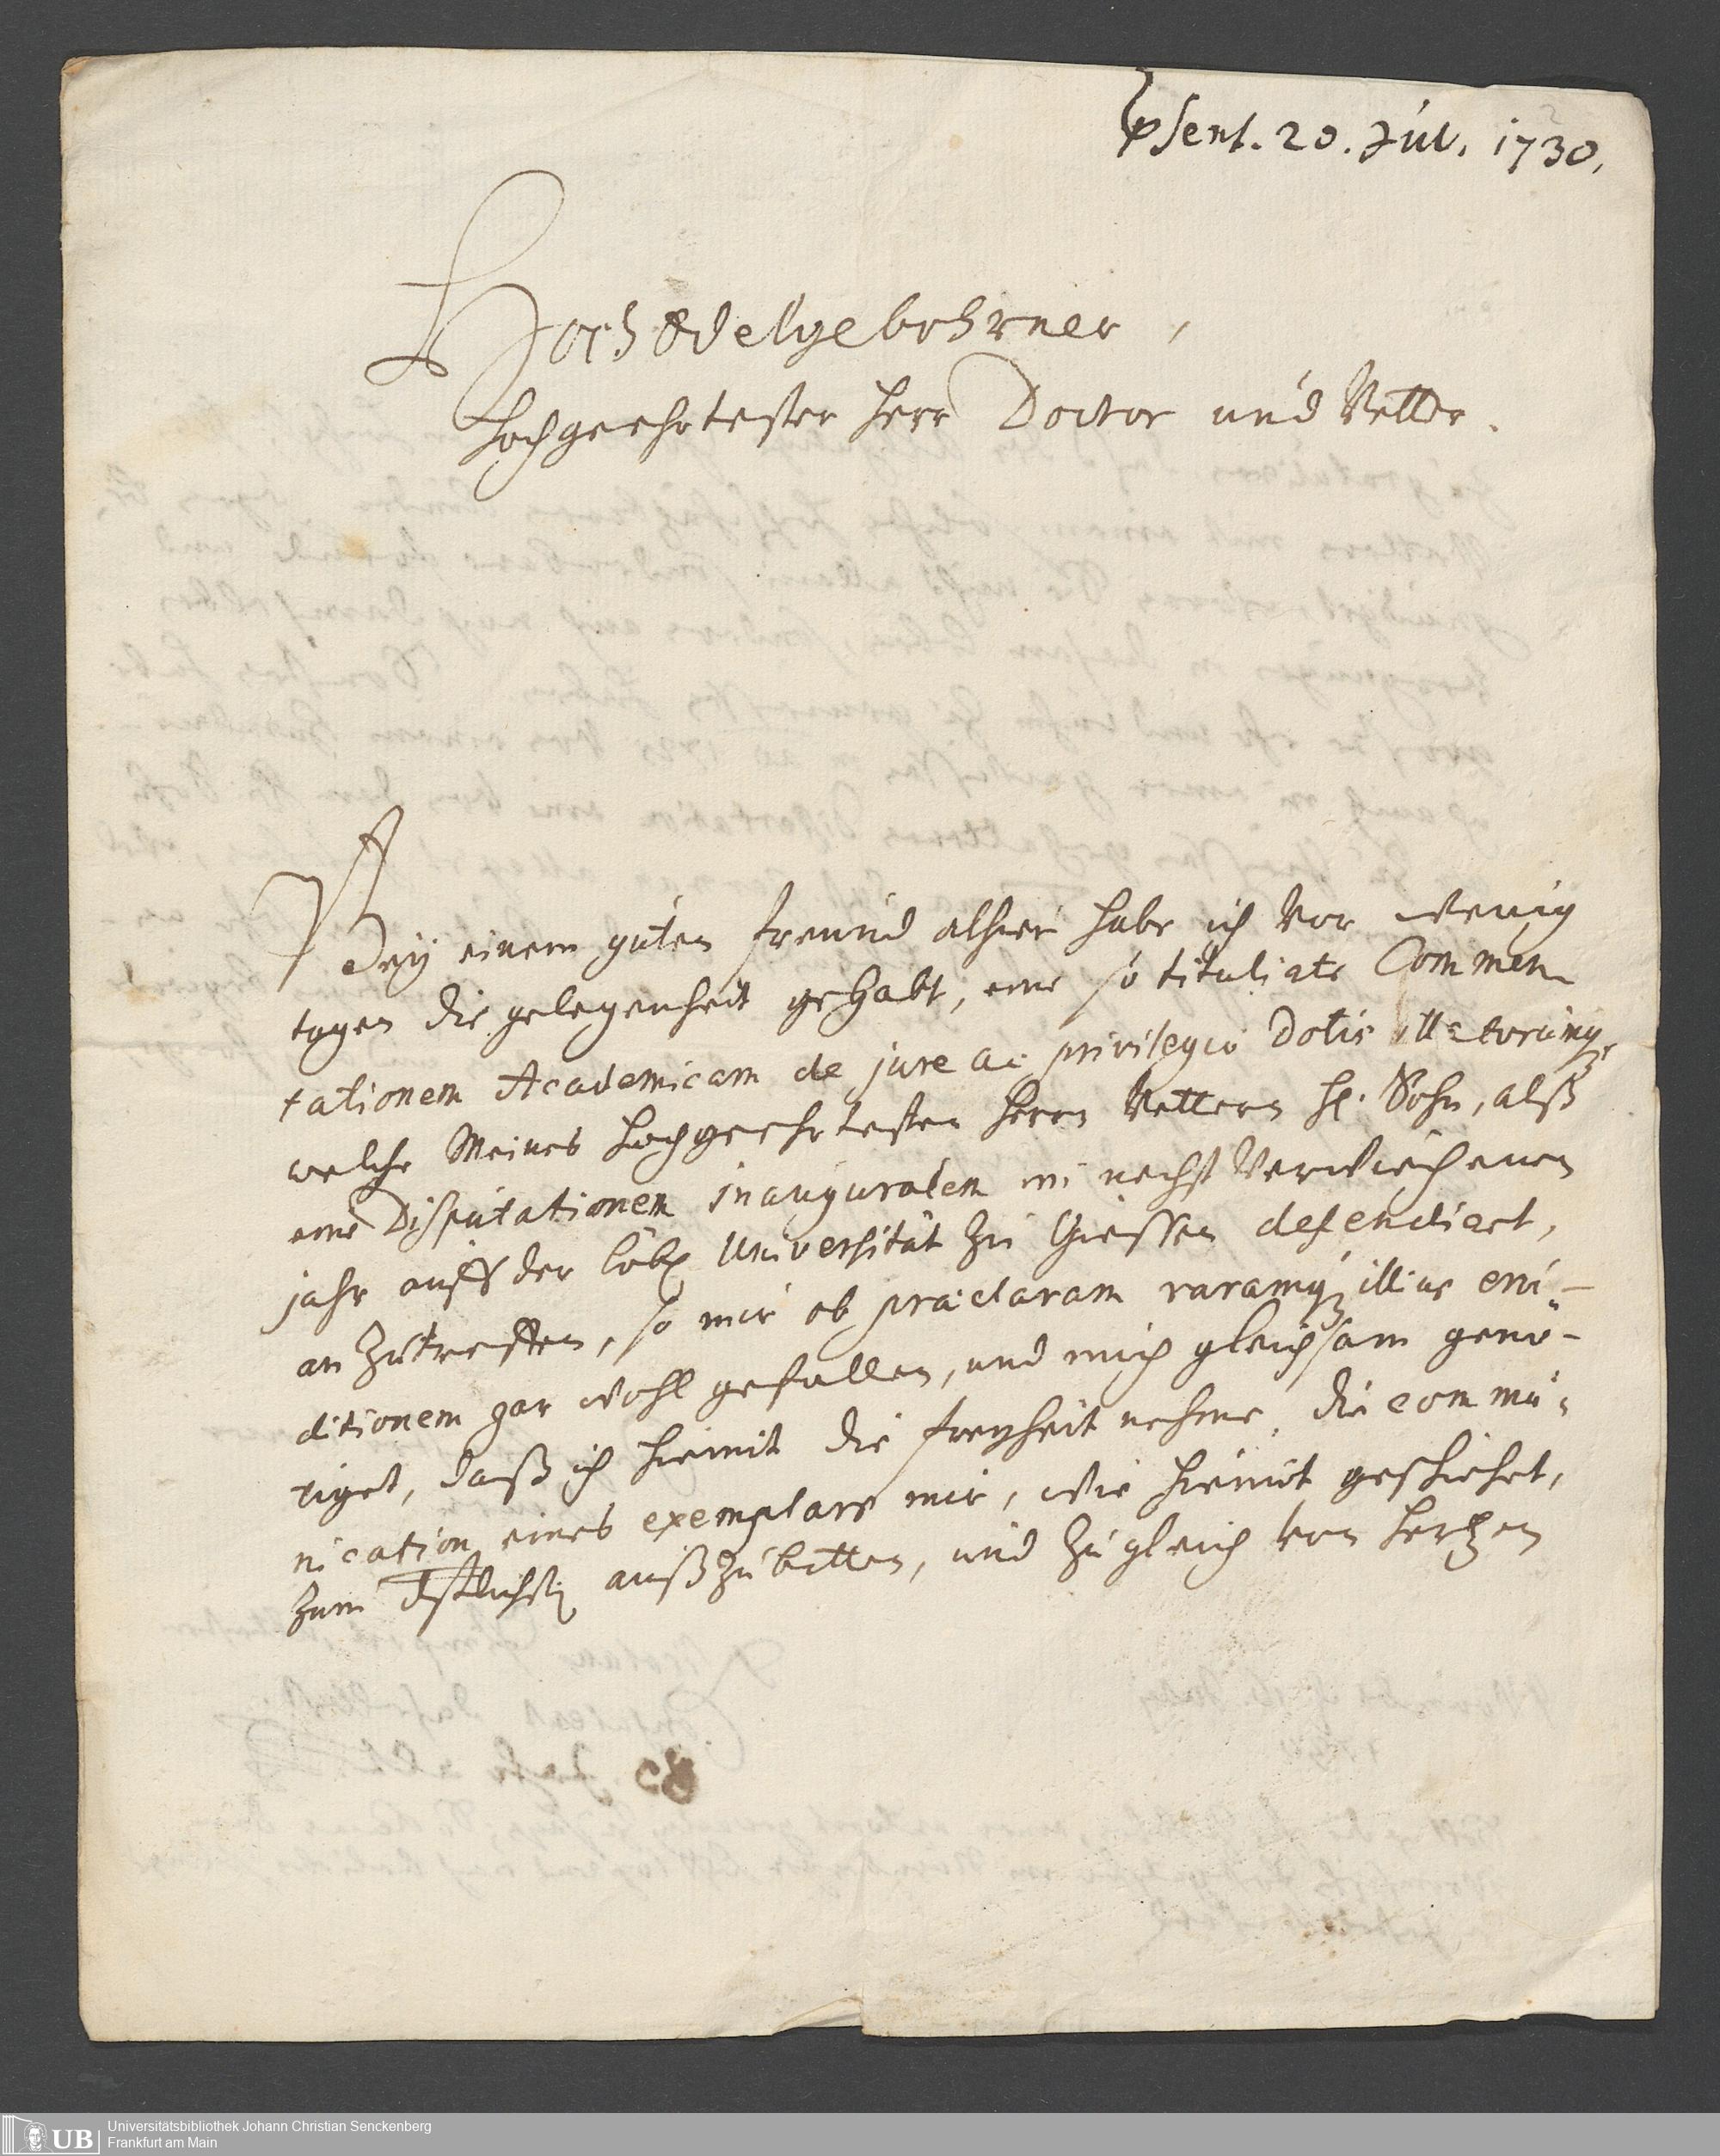 psent. 20. Jul. 1730.
HochEdelgebohrner,
Hochgeehrtester Herr Doctor und Vetter.
Bey einem guten freund alhier habe ich vor wenig
tagen die gelegenheit gehabt, eine so titulirte Commen-
tationem Academicam de jure ac privilegio Dotis
welche Meines Hochgeehrtesten Herrn Vettern H. Sohn, alß
eine Disputationem inauguralem im nechst verwichenen
jahr auff der löbl. Universität zu Giessen defendiret,
anzutreffen, so mir ob præclaram raramq; illius eru-
ditionem gar wohl gefallen, und mich gleichsam genö-
tiget, daß ich hiemit die freyheit nehme, die commu-
nication eines exemplars mir, wie hiemit geschiehet,
zum außzubitten, und zugleich von Hertzen
UB
Universitätsbibliothek Johann Christian Senckenberg
Frankfurt am Main